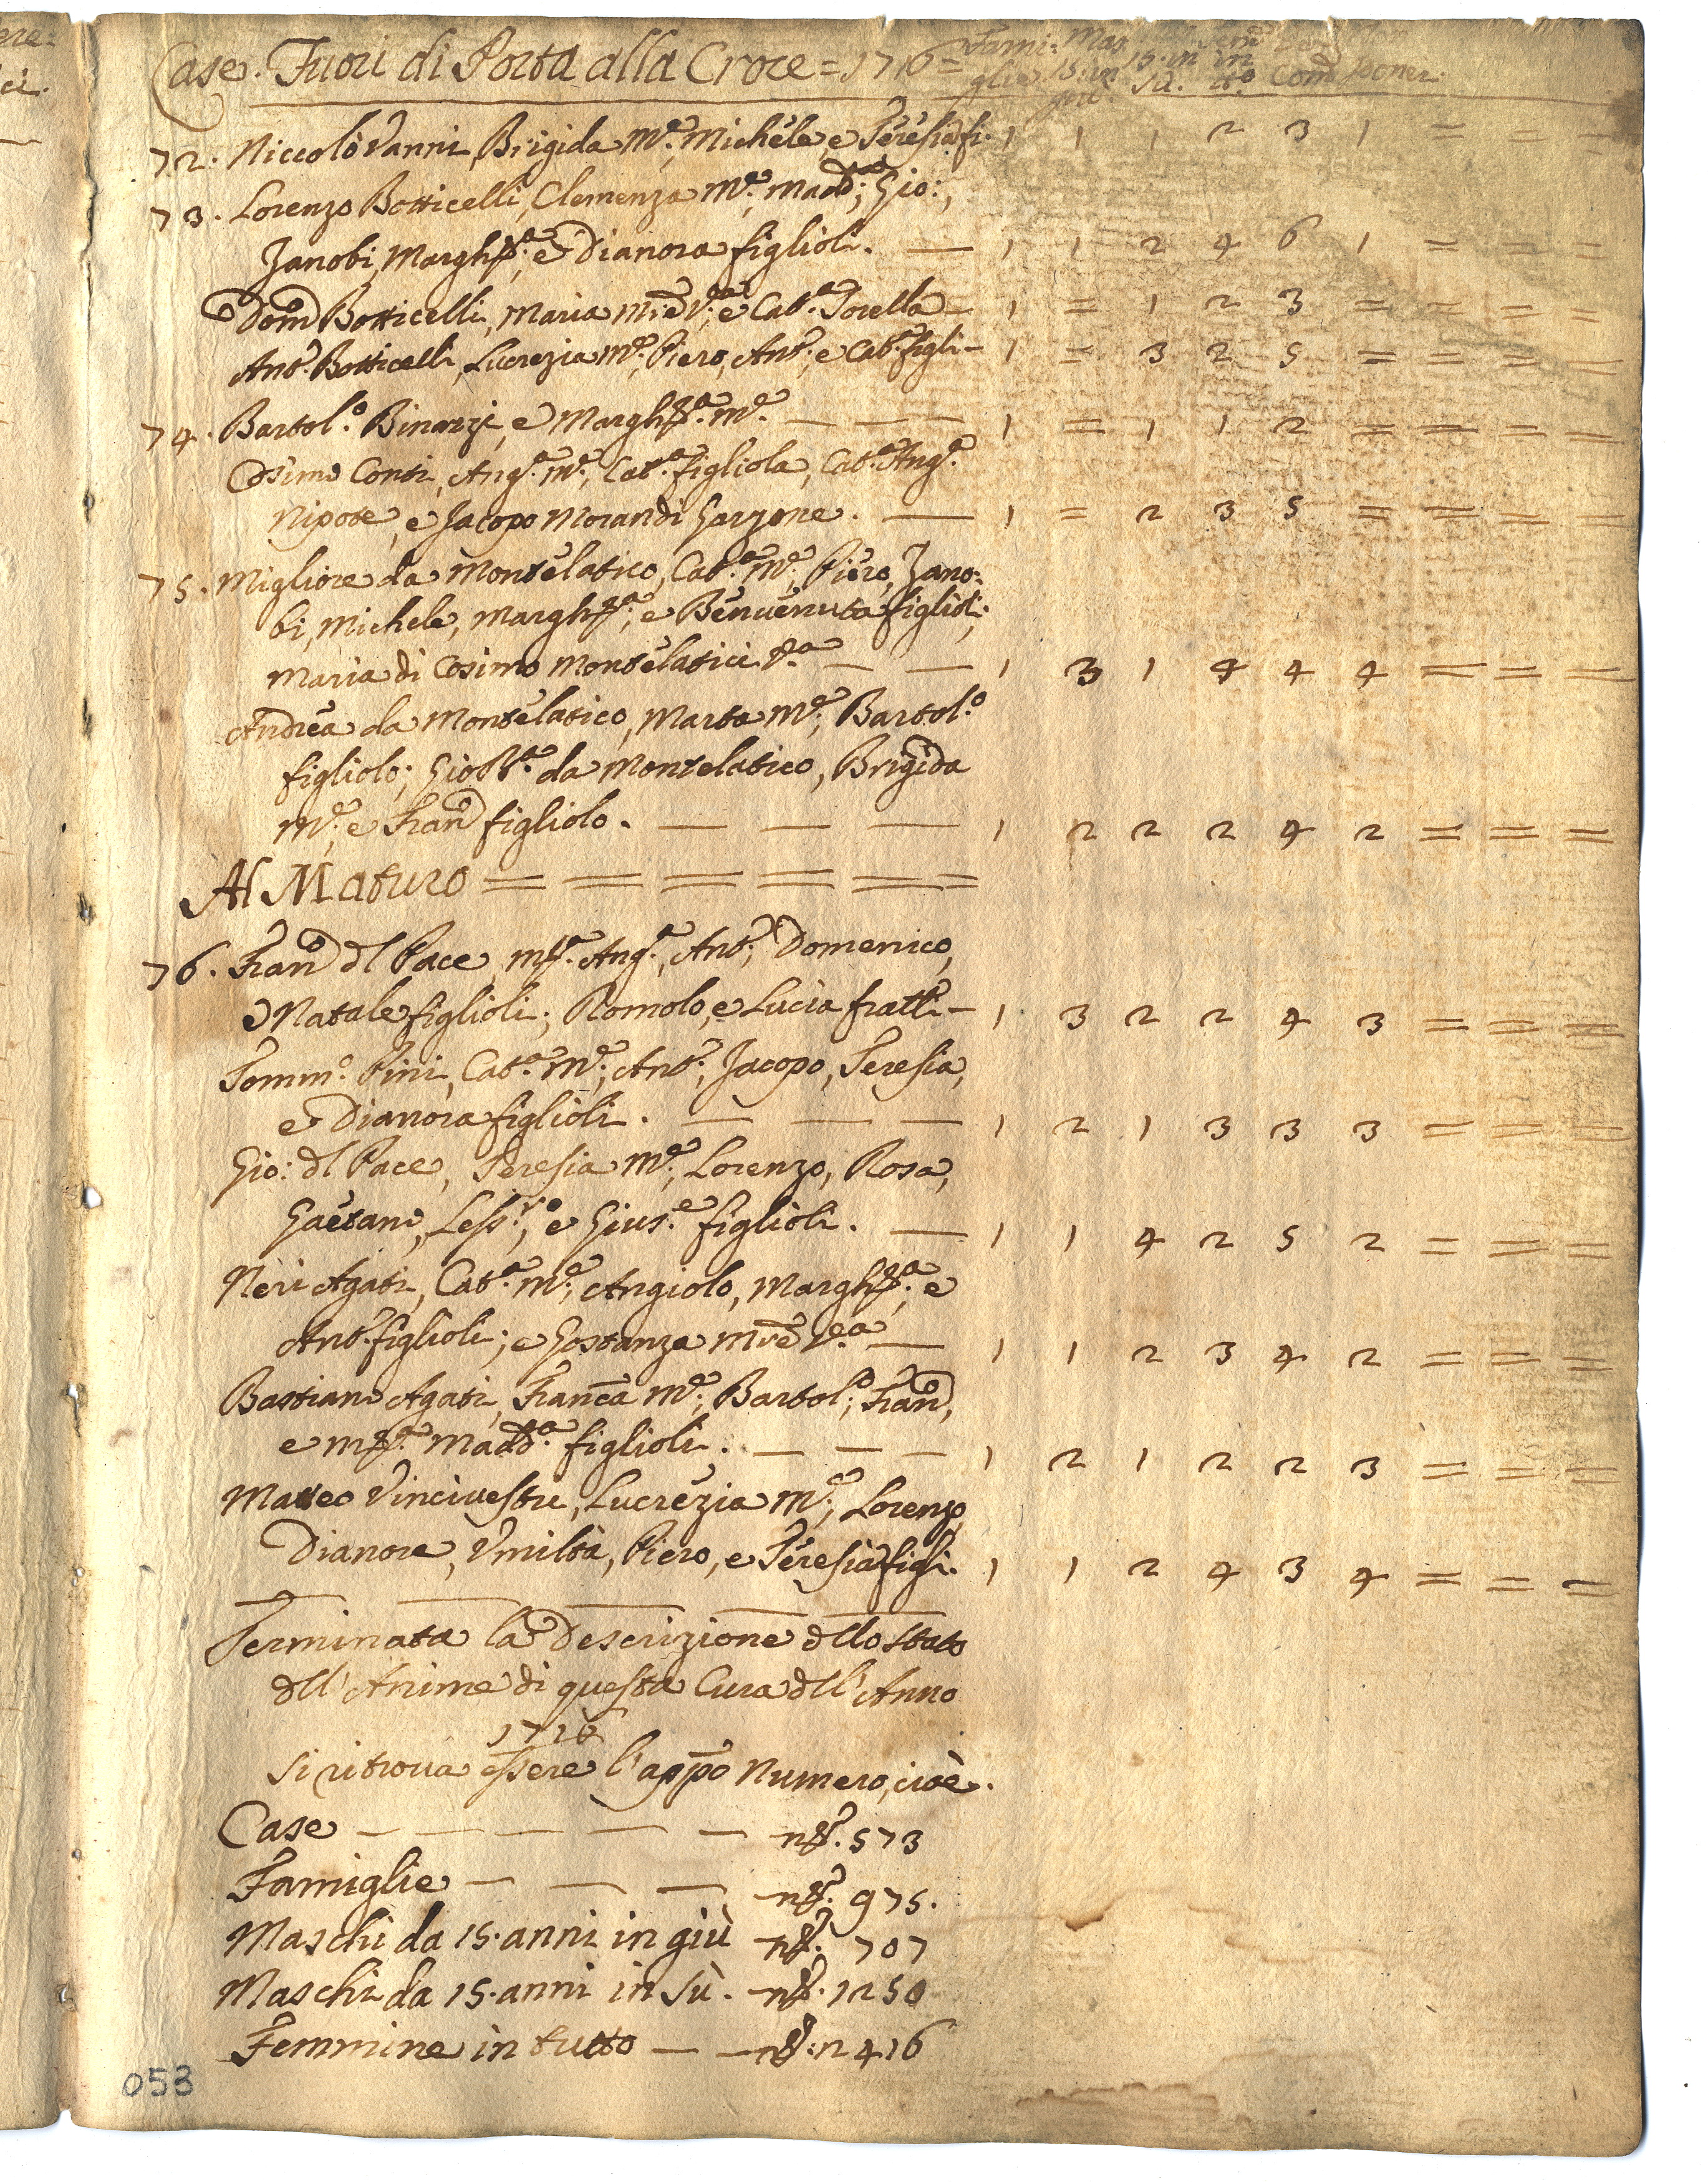 Case. Fuori di Porta alla Croce = 1716 = Fami: Mas.
glie 15. in 15. in in Com
giù sù. tto
72. Niccolò Vanni, Brigida M.e, Michele, e Teresia fi. 1 1 1 2 3 1 = = =
73. Lorenzo Botticelli, Clemenza M.e, Madd.a, Gio:,
Zanobi, Margh.ta, e Dianora figlioli. — 1 1 2 4 6 1 = = =
Dom.o Botticelli, Maria M.re V.a, e Cat.a Sorella — 1 = 1 2 3 = = = =
Ant.o Botticelli, Lucrezia M.e, Piero, Ant.o, e Cat.a figli — 1 = 3 2 5 = = = =
74. Bartol.o Binazzi, e Margh.ta M.e — — — 1 = 1 1 2 = = = =
Cosimo Conti, Ang.a M.e, Cat.a figliola, Cat.a Ang.a
Nipote, e Jacopo Morandi Garzone. — 1 = 2 3 5 = = = =
75. Migliore da Montelatico, Cat.a M.e, Piero, Zano:
bi, Michele, Margh.ta, e Benvenuta figlioli;
Maria di Cosimo Montelatici V.a — — 1 3 1 4 4 4 = = =
Andrea da Montelatico, Marta M.e, Bartol.o
figliolo; Gio B.a da Montelatico, Brigida
M.e, e Fran.o figliolo. — — — 1 2 2 2 4 2 = = =
Al Maturo = = = = = =
76. Fran.o dl Pace, M.a Ang.a, Ant.o, Domenico,
e Natale figlioli; Romolo, e Lucia fratlli — 1 3 2 2 4 3 = = =
Tomm.o Pini, Cat.a M.e, Ant.o, Jacopo, Teresia,
e Dianora figlioli. — — — 1 2 1 3 3 3 = = =
Gio: dl Pace, Teresia M.e, Lorenzo, Rosa,
Gaetano, Less.ro, e Gius.e figlioli. — 1 1 4 2 5 2 = = =
Neri Agati, Cat.a M.e, Angiolo, Margh.ta, e
Ant.o figlioli; e Gostanza M.re V.a — 1 1 2 3 4 2 = = =
Bastiano Agati, Fran.ca M.e, Bartol.o, Fran.o,
e M.a Madd.a figlioli. — — — 1 2 1 2 2 3 = = =
Matteo Vincivestri, Lucrezia M.e, Lorenzo,
Dianora, Umiltà, Piero, e Teresia figli. 1 1 2 4 3 4 = = =
Terminata la Descrizione dllo Stato
dll'Anime di questa Cura dll'Anno
1716
Si ritrova essere l'appo Numero, cioè.
Case — — — — — n.o 573
Famiglie — — — n.o 975.
Maschi da 15. anni in giù n.o 707
Maschi da 15. anni in Sù. n.o 1250
Femmine in tutto — — n.o 2416
053